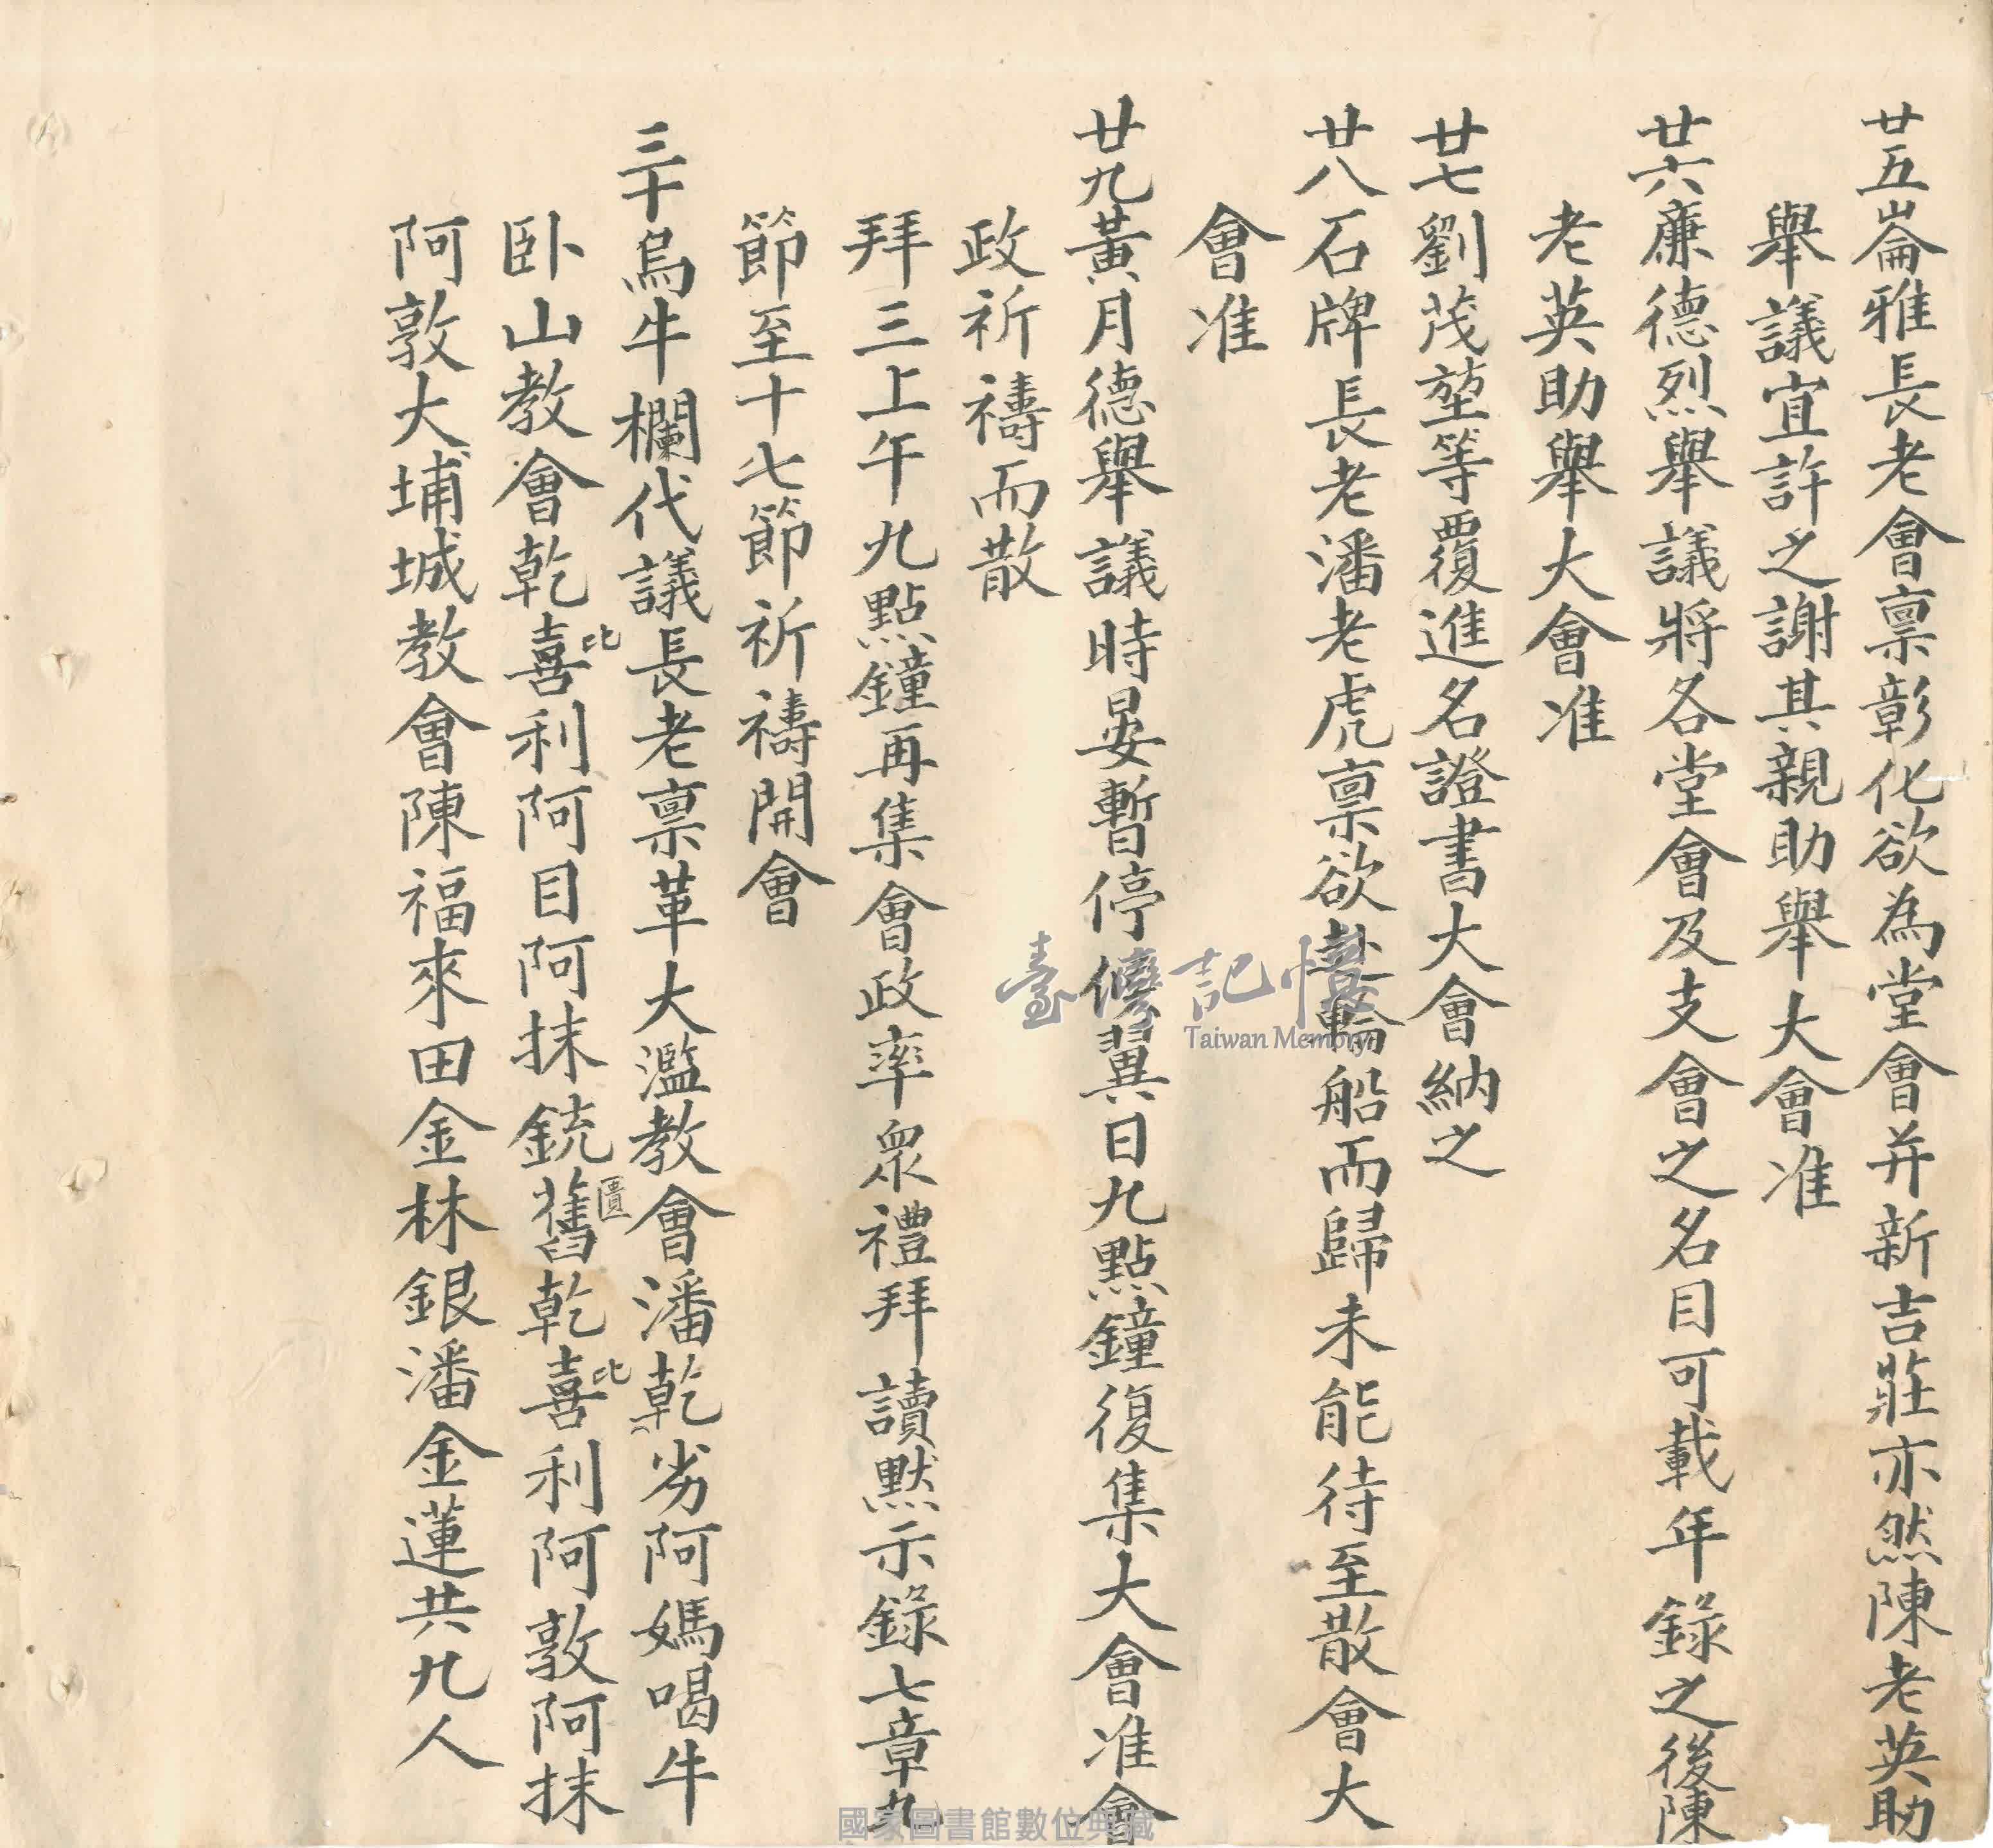 廿五崙雅長老會禀彰化欲為堂會并新吉莊亦然陳老英助
舉議宜許之謝其親助舉大會准
廿六廉德烈舉議將各堂會及支會之名目可載年錄之後陳
老英助舉大會准
廿七劉茂堃等覆進名證書大會納之
廿八石牌長老潘老虎禀欲趁輪船而歸未能待至散會大
會准
廿九黃月德舉議時晏暫停俟翼日九點鐘復集大會准會
政祈禱而散
拜三上午九點鐘再集會政率眾禮拜讀默示錄七章九
節至十七節祈禱開會
三十烏牛欄代議長老禀革大濫教會潘乾劣阿媽喝牛
卧山教會乾喜比利阿目阿抹銃舊匱乾喜比利阿敦阿抹
阿敦大埔城教會陳福來田金林銀潘金蓮共九人
臺灣記憶
Taiwan Memory
國家圖書館數位典藏